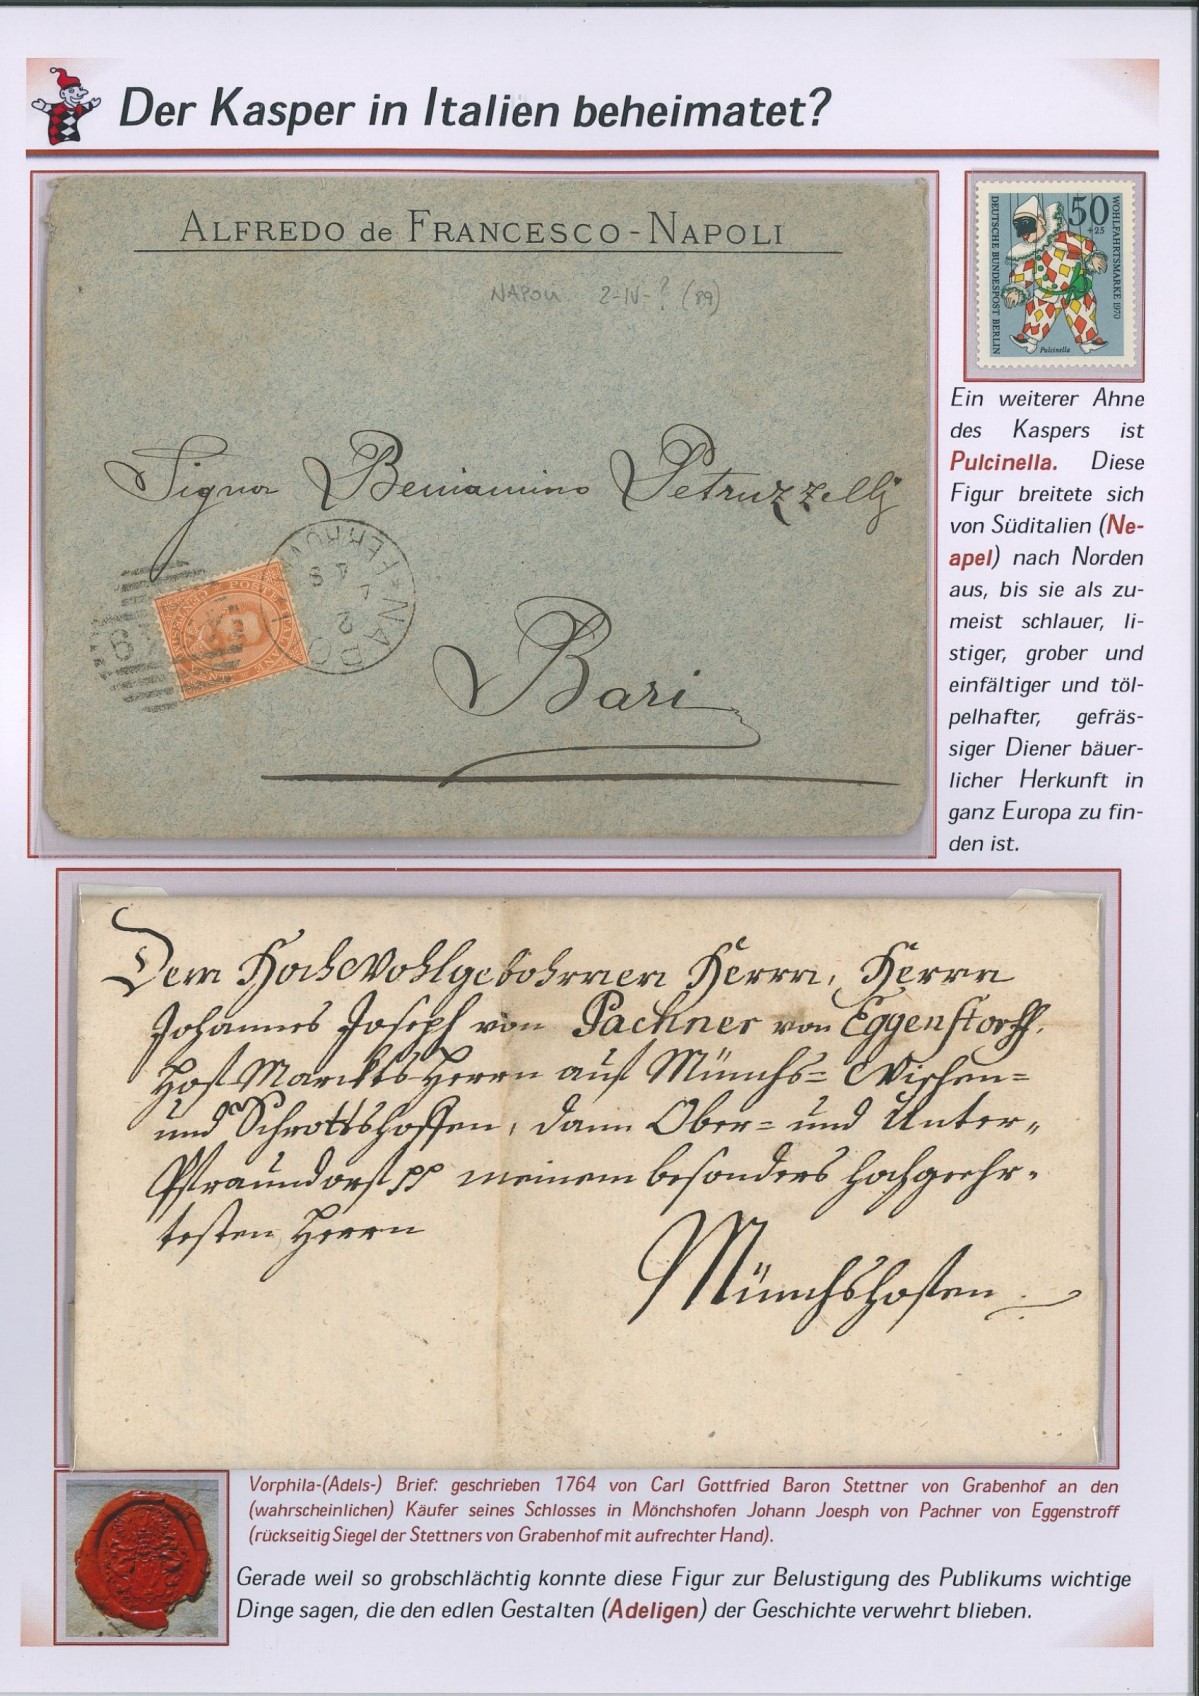 Der Kasper in Italien beheimatet?
ALFREDO de FRANCESCO - NAPOLI
NAPOLI 2-IV-? (89)
Signor Beniamino Petruzzelli
Bari
POSTE ITALIANE
NAPO
FERROV
2
4
8
50
+25
WOHLFAHRTSMARKE 1970
DEUTSCHE BUNDESPOST BERLIN
Pulcinella
Ein weiterer Ahne
des Kaspers ist
Pulcinella. Diese
Figur breitete sich
von Süditalien (Ne-
apel) nach Norden
aus, bis sie als zu-
meist schlauer, li-
stiger, grober und
einfältiger und töl-
pelhafter, gefräs-
siger Diener bäuer-
licher Herkunft in
ganz Europa zu fin-
den ist.
Dem HochWohlgebohrnen Herrn, Herrn
Johannes Joseph von Pachner von Eggenstorff.
Hof Marckts Herrn auf Münchs= Wischen=
und Schrottshoffen, dann Ober= und Unter„
Pfraundorf pp meinem besonders hochgeehr„
testen Herrn
Münchshofen
Vorphila-(Adels-) Brief: geschrieben 1764 von Carl Gottfried Baron Stettner von Grabenhof an den
(wahrscheinlichen) Käufer seines Schlosses in Mönchshofen Johann Joesph von Pachner von Eggenstroff
(rückseitig Siegel der Stettners von Grabenhof mit aufrechter Hand).
Gerade weil so grobschlächtig konnte diese Figur zur Belustigung des Publikums wichtige
Dinge sagen, die den edlen Gestalten (Adeligen) der Geschichte verwehrt blieben.